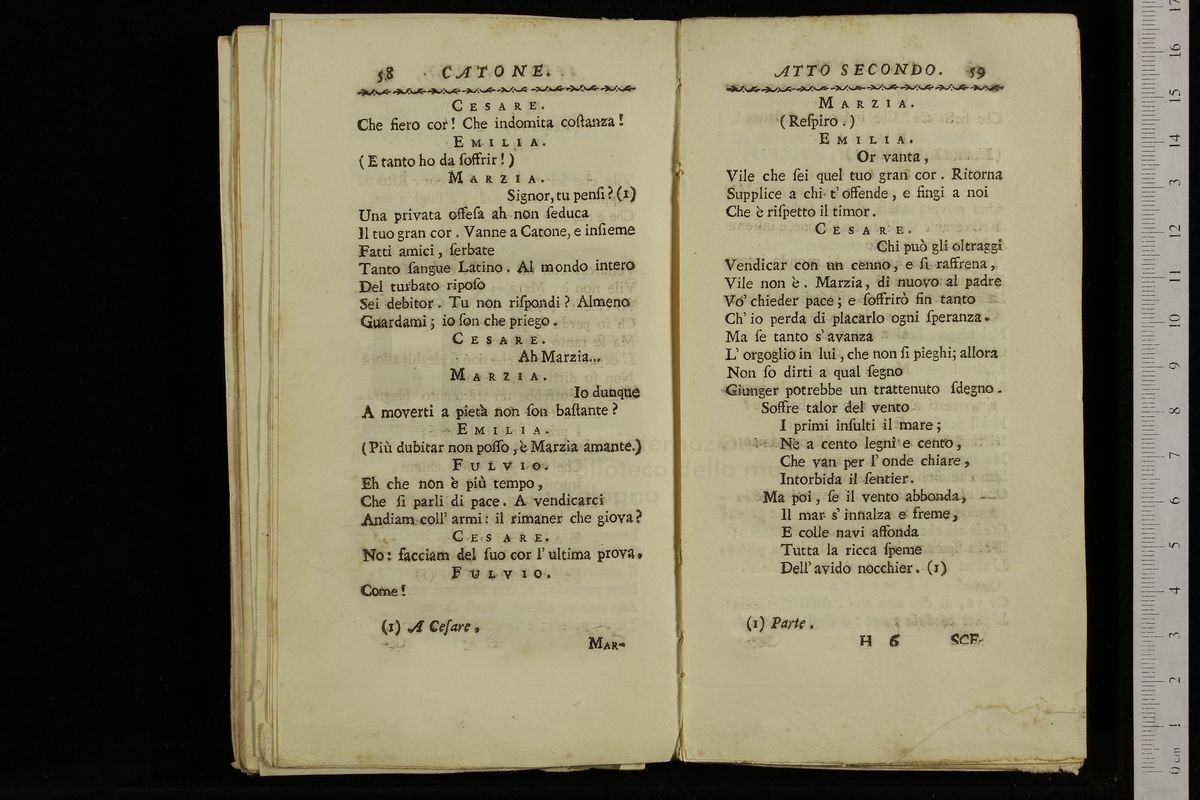 58 CATONE.
CESARE.
Che fiero cor! Che indomita coſtanza!
EMILIA.
(E tanto ho da ſoffrir!)
MARZIA.
Signor, tu penſi? (1)
Una privata offeſa ah non ſeduca
Il tuo gran cor. Vanne a Catone, e inſieme
Fatti amici, ſerbate
Tanto ſangue Latino. Al mondo intero
Del turbato ripoſo
Sei debitor. Tu non riſpondi? Almeno
Guardami; io ſon che priego.
CESARE.
Ah Marzia...
MARZIA.
Io dunque
A moverti a pietà non ſon baſtante?
EMILIA.
(Più dubitar non poſſo, è Marzia amante.)
FULVIO.
Eh che non è più tempo,
Che ſi parli di pace. A vendicarci
Andiam coll' armi: il rimaner che giova?
CESARE.
No: facciam del ſuo cor l' ultima prova.
FULVIO.
Come!
(1) A Ceſare.
MAR-
ATTO SECONDO. 59
MARZIA.
(Reſpiro.)
EMILIA.
Or vanta,
Vile che ſei quel tuo gran cor. Ritorna
Supplice a chi t' offende, e fingi a noi
Che è riſpetto il timor.
CESARE.
Chi può gli oltraggi
Vendicar con un cenno, e ſi raffrena,
Vile non è. Marzia, di nuovo al padre
Vo' chieder pace; e ſoffrirò fin tanto
Ch' io perda di placarlo ogni ſperanza.
Ma ſe tanto s' avanza
L' orgoglio in lui, che non ſi pieghi; allora
Non ſo dirti a qual ſegno
Giunger potrebbe un trattenuto ſdegno.
Soffre talor del vento
I primi inſulti il mare;
Nè a cento legni e cento,
Che van per l' onde chiare,
Intorbida il ſentier.
Ma poi, ſe il vento abbonda,
Il mar s' innalza e freme,
E colle navi affonda
Tutta la ricca ſpeme
Dell' avido nocchier. (1)
(1) Parte.
H 6 SCE-